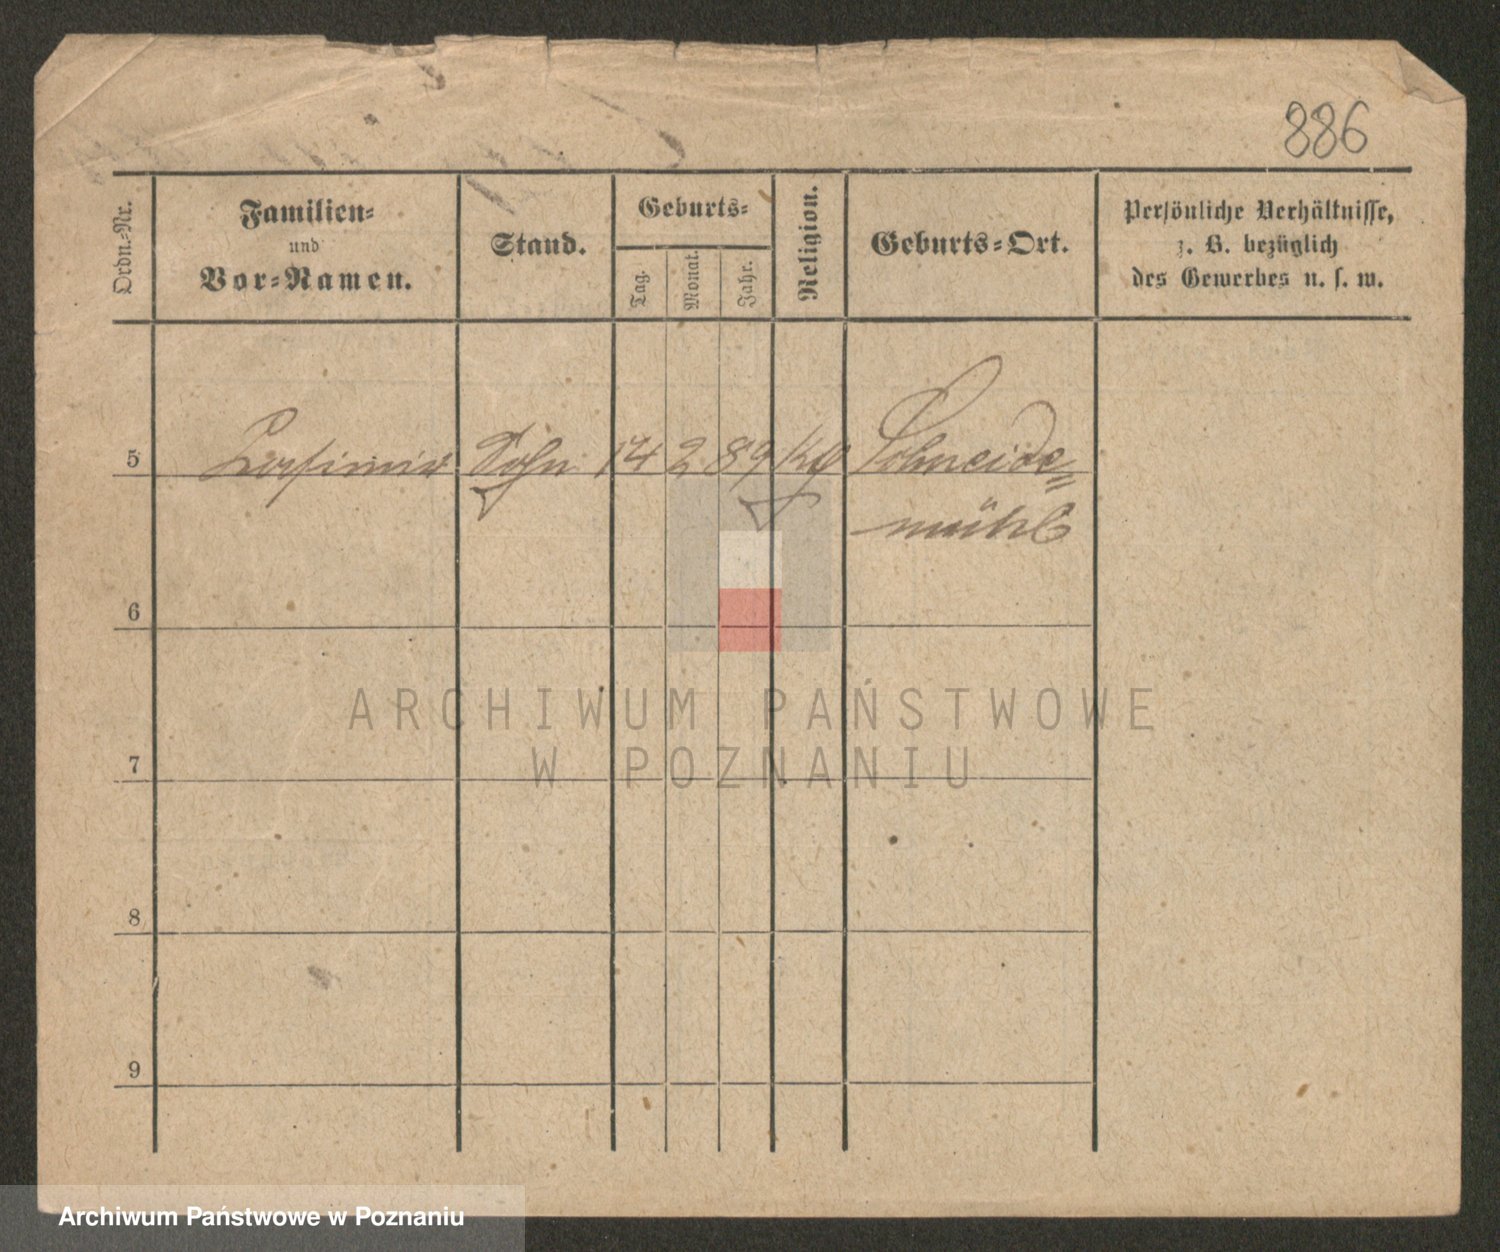 886
Ordn.-Nr.
Familien-
und
Vor-Namen.
Stand.
Geburts-
Tag.
Monat.
Jahr.
Religion.
Geburts-Ort.
Persönliche Verhältnisse,
z. B. bezüglich
des Gewerbes u. s. w.
5 Sohn 14 2 89 Schneide=
mühl
6
7
8
9
ARCHIWUM PAŃSTWOWE
W POZNANIU
Archiwum Państwowe w Poznaniu